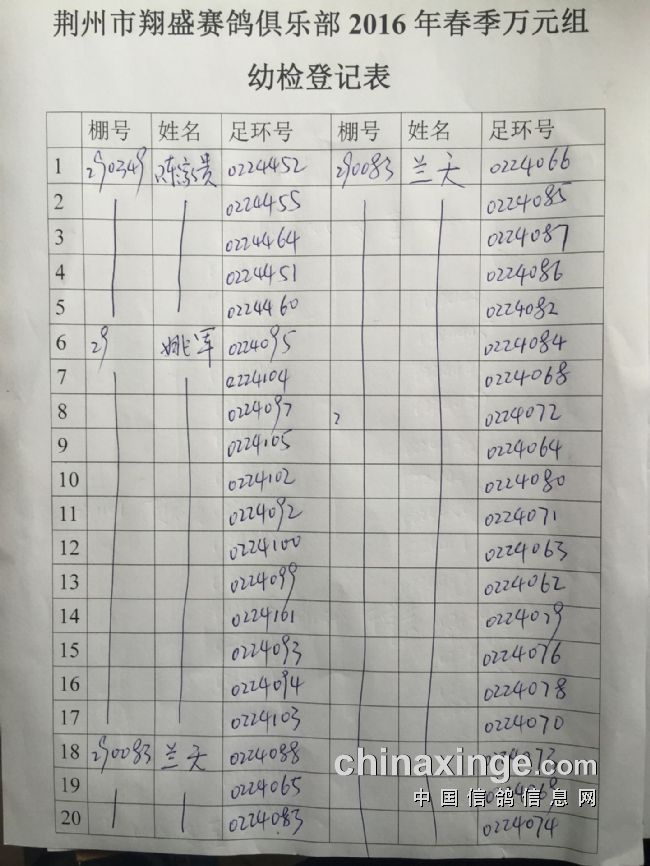 荆州市翔盛赛鸽俱乐部 2016 年春季万元组
幼检登记表
棚号 姓名 足环号 棚号 姓名 足环号
1 290349 陈家贵 0224452 290083 兰天 0224066
2 0224455 0224085
3 0224464 0224087
4 0224451 0224086
5 0224460 0224082
6 29 姚军 0224095 0224084
7 0224104 0224068
8 0224097 2 0224072
9 0224105 0224064
10 0224102 0224080
11 0224092 0224071
12 0224100 0224063
13 0224099 0224062
14 0224101 0224079
15 0224093 0224076
16 0224094 0224078
17 0224103 0224070
18 290083 兰天 0224088
19 0224065
20 0224083 0224074
chinaxinge.com
中国信鸽信息网